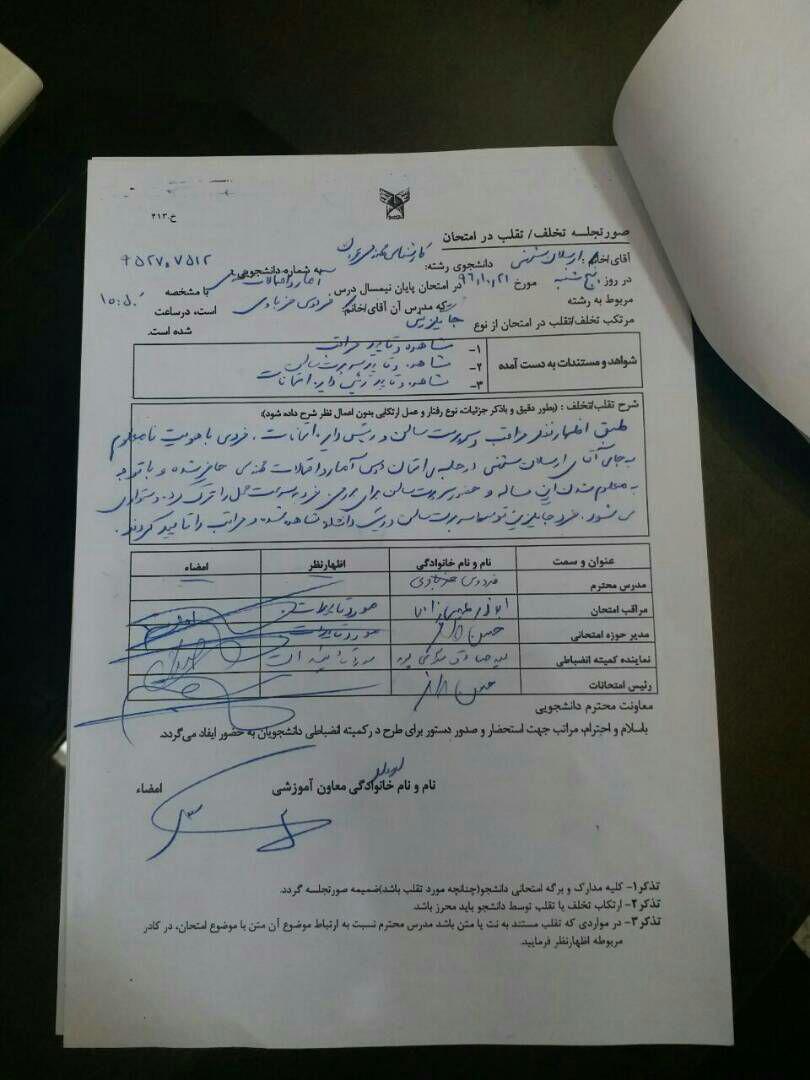 خ-۴۱۳
صورتجلسه تخلف/ تقلب در امتحان
آقای/خانم: ارسلان دانشجوی رشته: کارشناسی مهندسی عمران به شماره دانشجویی:
در روز پنج شنبه مورخ ۹۶/۱۰/۲۱ در امتحان پایان نیمسال درس آمار و احتمالات مهندسی با مشخصه
مربوط به رشته که مدرس آن آقای/خانم: فردوس است، درساعت ۱۵:۵۰
مرتکب تخلف/تقلب در امتحان از نوع جایگزینی شده است.
شواهد و مستندات به دست آمده
۱- مشاهده و تایید مراقب
۲- مشاهده و تایید سرپرست سالن
۳- مشاهده و تایید رئیس دایره امتحانات
شرح تقلب/تخلف: (بطور دقیق و باذکر جزئیات، نوع رفتار و عمل ارتکابی بدون اعمال نظر شرح داده شود):
طبق اظهار نظر مراقب و سرپرست سالن و رئیس دایره امتحانات، فردی با هویت نامعلوم
به جای آقای ارسلان در جلسه امتحان درس آمار و احتمالات مهندسی حاضر شده و با توجه
به معلوم شدن این مساله و حضور سرپرست سالن برای بررسی فرد به سرعت محل را ترک
می شود. فرد جایگزین توسط سرپرست سالن دانشکده مشاهده شده و مراتب را تایید کردند.
عنوان و سمت نام و نام خانوادگی اظهارنظر امضاء
مدرس محترم فردوس
مراقب امتحان مورد تایید است
مدیر حوزه امتحانی حسن مورد تایید است
نماینده کمیته انضباطی مورد تایید است
رئیس امتحانات حسن
معاونت محترم دانشجویی
باسلام و احترام، مراتب جهت استحضار و صدور دستور برای طرح در کمیته انضباطی دانشجویان به حضور ایفاد می‌گردد.
نام و نام خانوادگی معاون آموزشی امضاء
تذکر۱- کلیه مدارک و برگه امتحانی دانشجو(چنانچه مورد تقلب باشد)ضمیمه صورتجلسه گردد.
تذکر۲- ارتکاب تخلف یا تقلب توسط دانشجو باید محرز باشد.
تذکر۳- در مواردی که تقلب مستند به نت یا متن باشد مدرس محترم نسبت به ارتباط موضوع آن متن با موضوع امتحان، در کادر
مربوطه اظهارنظر فرمایید.